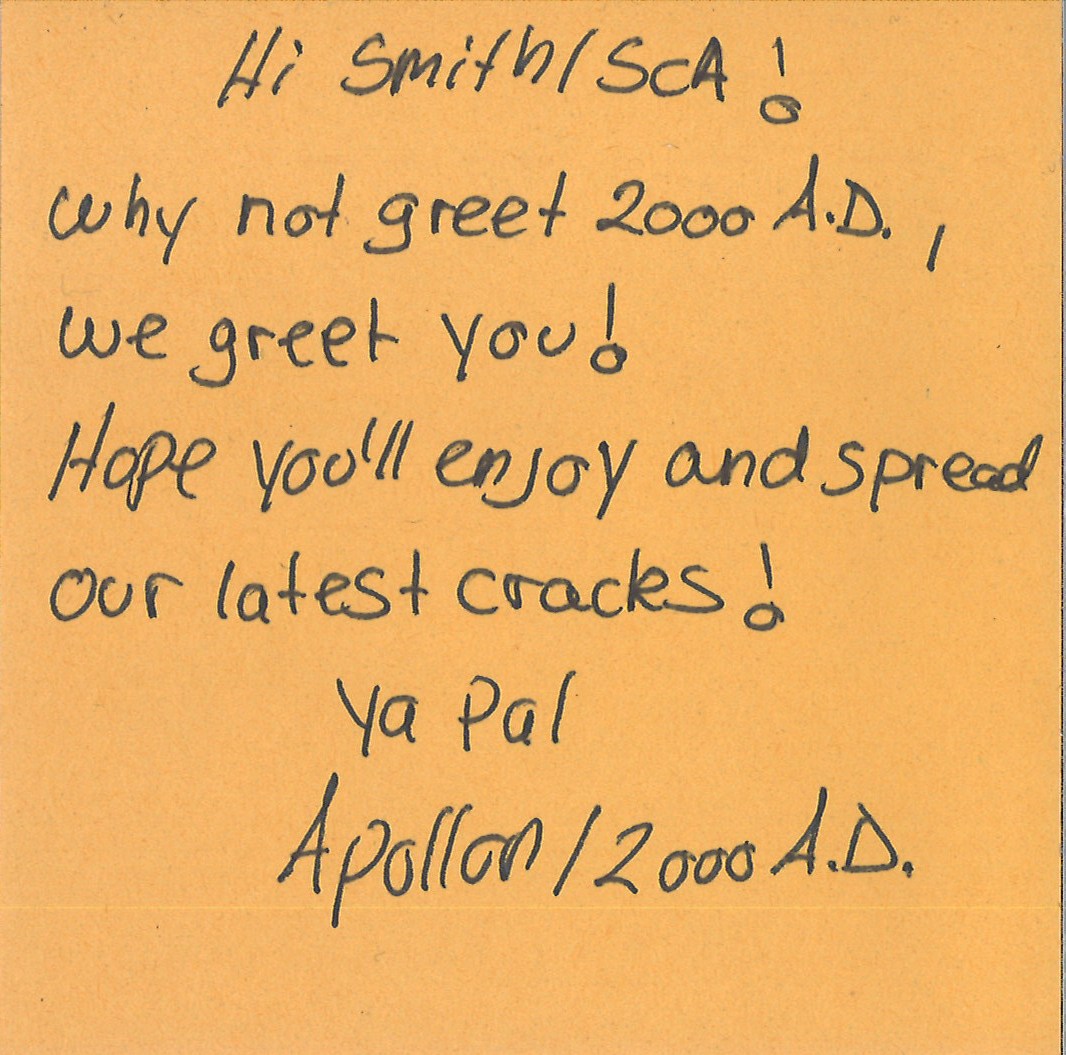 Hi Smith/ScA!
why not greet 2000 A.D.,
we greet you!
Hope you'll enjoy and spread
our latest cracks!
Ya Pal
Apollon/2000 A.D.